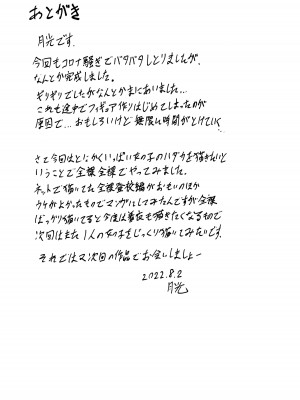 あとがき
月光です。
今回もコロナ騒ぎでバタバタしとりましたが、
なんとか完成しました。
ギリギリでしたがなんとかまにあいました…
これも途中でフィギュア作りはじめてしまったのが
原因で…おもしろいけど無限に時間がとけていく
さて今回はとにかくいっぱい女の子のハダカを描きたいと
いうことで全裸全裸でやってみました。
ネットで描いてた全裸登校編がおもいのほか
ウケがよかったものでマンガにしてみたんですが全裸
ばっかり描いてると今度は着衣も描きたくなるわけで
次回はまた1人の女の子をじっくり描いてみたいです。
それではマタ次回の作品でお会いしましょー
2022.8.2
月光